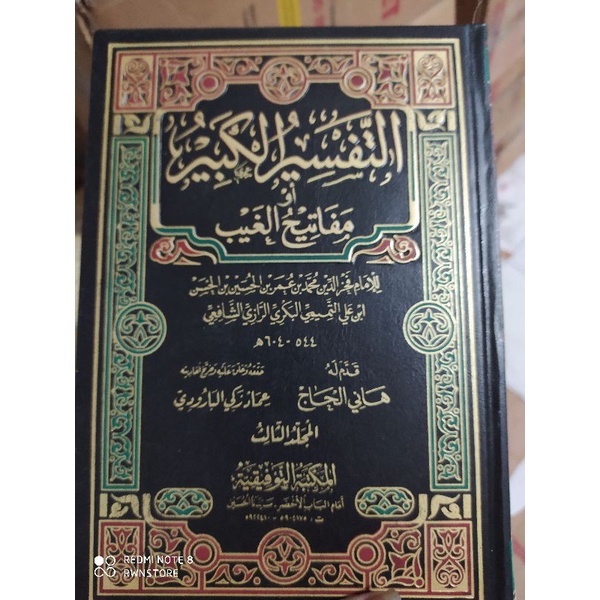 التَّفْسِيرُ الكَبِيرُ
أَوْ
مَفَاتِيحُ الغَيْبِ
للإمَام فَخْر الدِّين مُحَمَّد بْن عُمَر بْن الحُسَيْن بْن الحَسَن
ابْن عَلي التَّمِيمِي البَكْرِي الرَّازِي الشَّافِعِي
٥٤٤ - ٦٠٤ هـ
قَدَّمَ لَهُ
هَانِي الحَاج
حققه وعلق عليه وخرج أحاديثه
عماد زكي البارودي
المجلد الثالث
المكتبة التوفيقية
أمام الباب الأخضر - سيدنا الحسين
REDMI NOTE 8
BWNSTORE